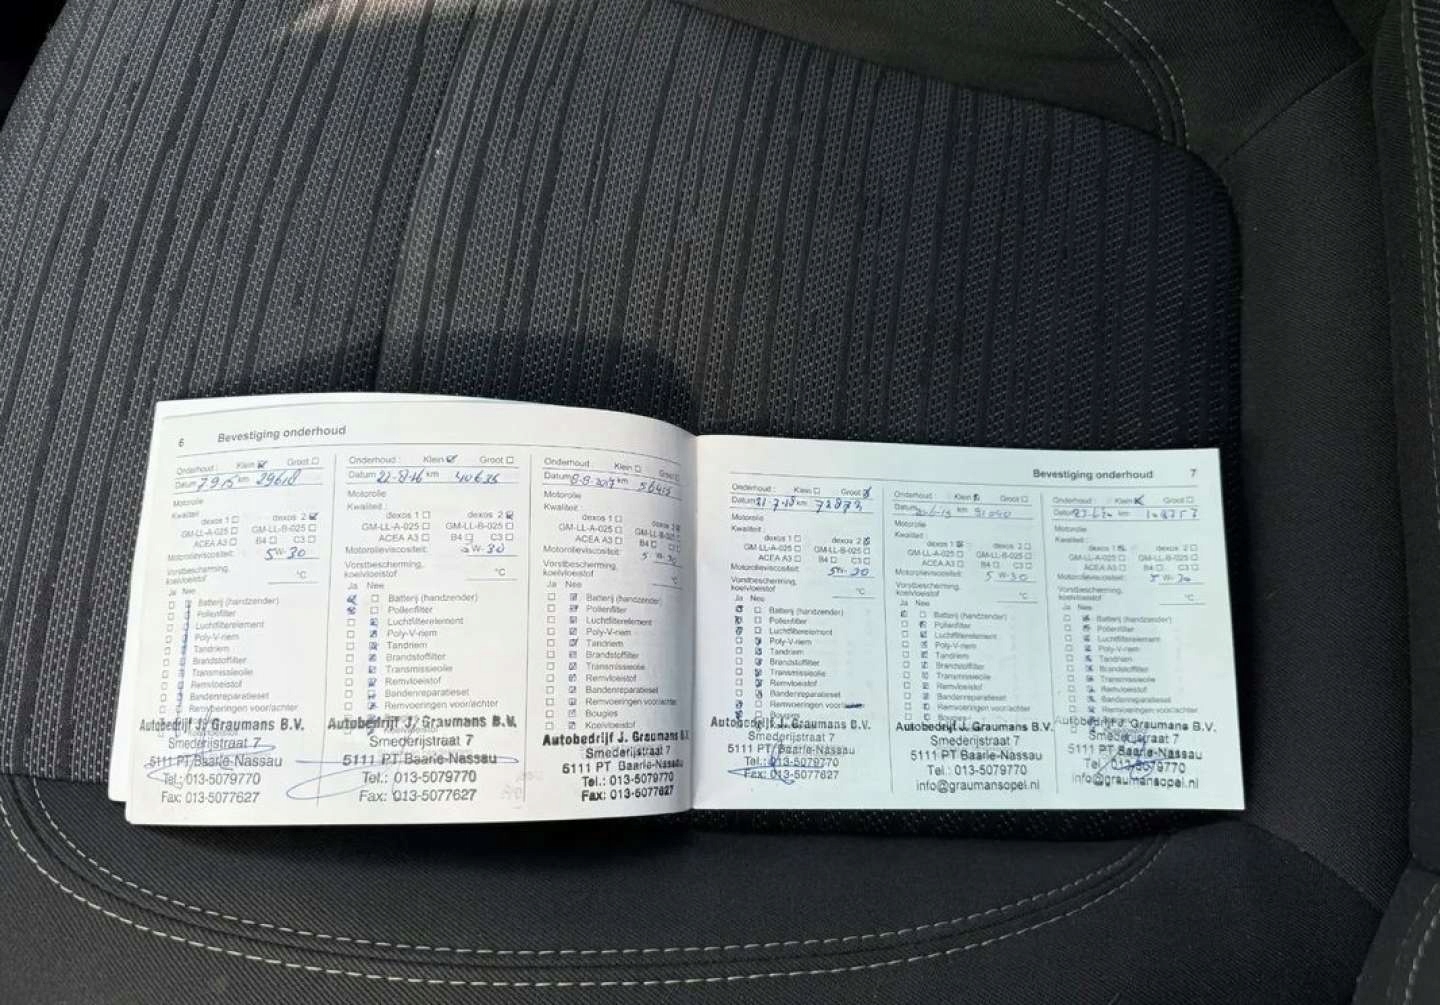 6 Bevestiging onderhoud
Onderhoud : Klein Groot
Datum 7 9 15 km 29618
Motorolie
Kwaliteit
dexos 1 dexos 2
GM-LL-A-025 GM-LL-B-025
ACEA A3 B4 C3
Motorolieviscositeit: 5W-30
Vorstbescherming,
koelvloeistof °C
Ja Nee
Batterij (handzender)
Pollenfilter
Luchtfilterelement
Poly-V-riem
Tandriem
Brandstoffilter
Transmissieolie
Remvloeistof
Bandenreparatieset
Remvoeringen voor/achter
Autobedrijf J. Graumans B.V.
Smederijstraat 7
5111 PT Baarle-Nassau
Tel.: 013-5079770
Fax: 013-5077627
Onderhoud : Klein Groot
Datum 22-8-16 km 40635
Motorolie
Kwaliteit :
dexos 1 dexos 2
GM-LL-A-025 GM-LL-B-025
ACEA A3 B4 C3
Motorolieviscositeit: 5W-30
Vorstbescherming,
koelvloeistof °C
Ja Nee
Batterij (handzender)
Pollenfilter
Luchtfilterelement
Poly-V-riem
Tandriem
Brandstoffilter
Transmissieolie
Remvloeistof
Bandenreparatieset
Remvoeringen voor/achter
Autobedrijf J. Graumans B.V.
Smederijstraat 7
5111 PT Baarle-Nassau
Tel.: 013-5079770
Fax: 013-5077627
Onderhoud : Klein Groot
Datum 8-8-2017 km
Motorolie
Kwaliteit :
dexos 1 dexos 2
GM-LL-A-025 GM-LL-B-025
ACEA A3 B4 C3
Motorolieviscositeit: 5 W-30
Vorstbescherming,
koelvloeistof °C
Ja Nee
Batterij (handzender)
Pollenfilter
Luchtfilterelement
Poly-V-riem
Tandriem
Brandstoffilter
Transmissieolie
Remvloeistof
Bandenreparatieset
Remvoeringen voor/achter
Bougies
Koelvloeistof
Autobedrijf J. Graumans B.V.
Smederijstraat 7
5111 PT Baarle-Nassau
Tel.: 013-5079770
Fax: 013-5077627
Bevestiging onderhoud 7
Onderhoud : Klein Groot
Datum 21-7-18 km 72873
Motorolie
Kwaliteit :
dexos 1 dexos 2
GM-LL-A-025 GM-LL-B-025
ACEA A3 B4 C3
Motorolieviscositeit: 5W-30
Vorstbescherming,
koelvloeistof °C
Ja Nee
Batterij (handzender)
Pollenfilter
Luchtfilterelement
Poly-V-riem
Tandriem
Brandstoffilter
Transmissieolie
Remvloeistof
Bandenreparatieset
Remvoeringen voor/achter
Bougies
Autobedrijf J. Graumans B.V.
Smederijstraat 7
5111 PT Baarle-Nassau
Tel.: 013-5079770
Fax: 013-5077627
Onderhoud : Klein Groot
Datum km
Motorolie
Kwaliteit :
dexos 1 dexos 2
GM-LL-A-025 GM-LL-B-025
ACEA A3 B4 C3
Motorolieviscositeit: 5 W-30
Vorstbescherming,
koelvloeistof °C
Ja Nee
Batterij (handzender)
Pollenfilter
Luchtfilterelement
Poly-V-riem
Tandriem
Brandstoffilter
Transmissieolie
Remvloeistof
Bandenreparatieset
Remvoeringen voor/achter
Bougies
Autobedrijf J. Graumans B.V.
Smederijstraat 7
5111 PT Baarle-Nassau
Tel.: 013-5079770
info@graumansopel.nl
Onderhoud : Klein Groot
Datum km
Motorolie
Kwaliteit :
dexos 1 dexos 2
GM-LL-A-025 GM-LL-B-025
ACEA A3 B4 C3
Motorolieviscositeit: 5 W-30
Vorstbescherming,
koelvloeistof °C
Ja Nee
Batterij (handzender)
Pollenfilter
Luchtfilterelement
Poly-V-riem
Tandriem
Brandstoffilter
Transmissieolie
Remvloeistof
Bandenreparatieset
Remvoeringen voor/achter
Autobedrijf J. Graumans B.V.
Smederijstraat 7
5111 PT Baarle-Nassau
Tel.: 013-5079770
info@graumansopel.nl